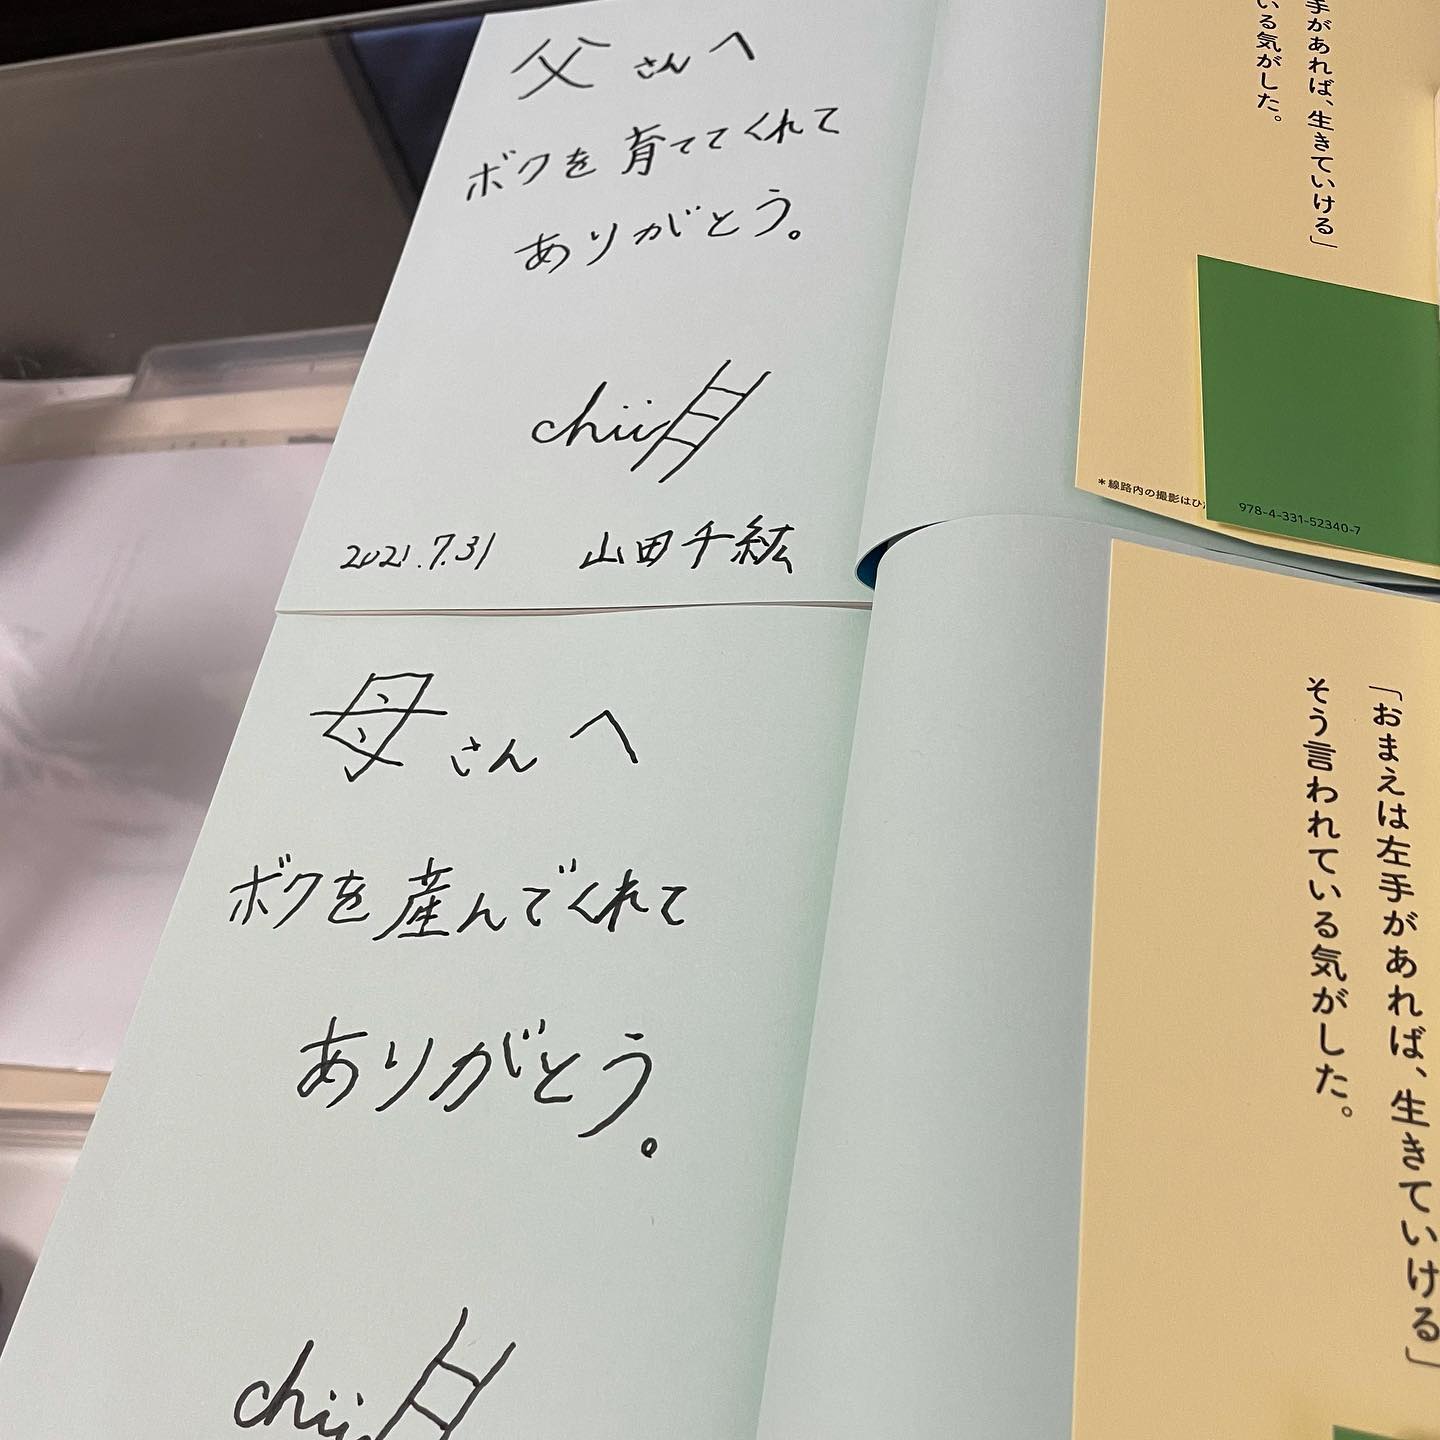 父さんへ
ボクを育ててくれて
ありがとう。
chii
2021.7.31 山田千紘
手があれば、生きていける」
いる気がした。
*線路内の撮影はひ
978-4-331-52340-7
母さんへ
ボクを産んでくれて
ありがとう。
chii
「おまえは左手があれば、生きていける」
そう言われている気がした。